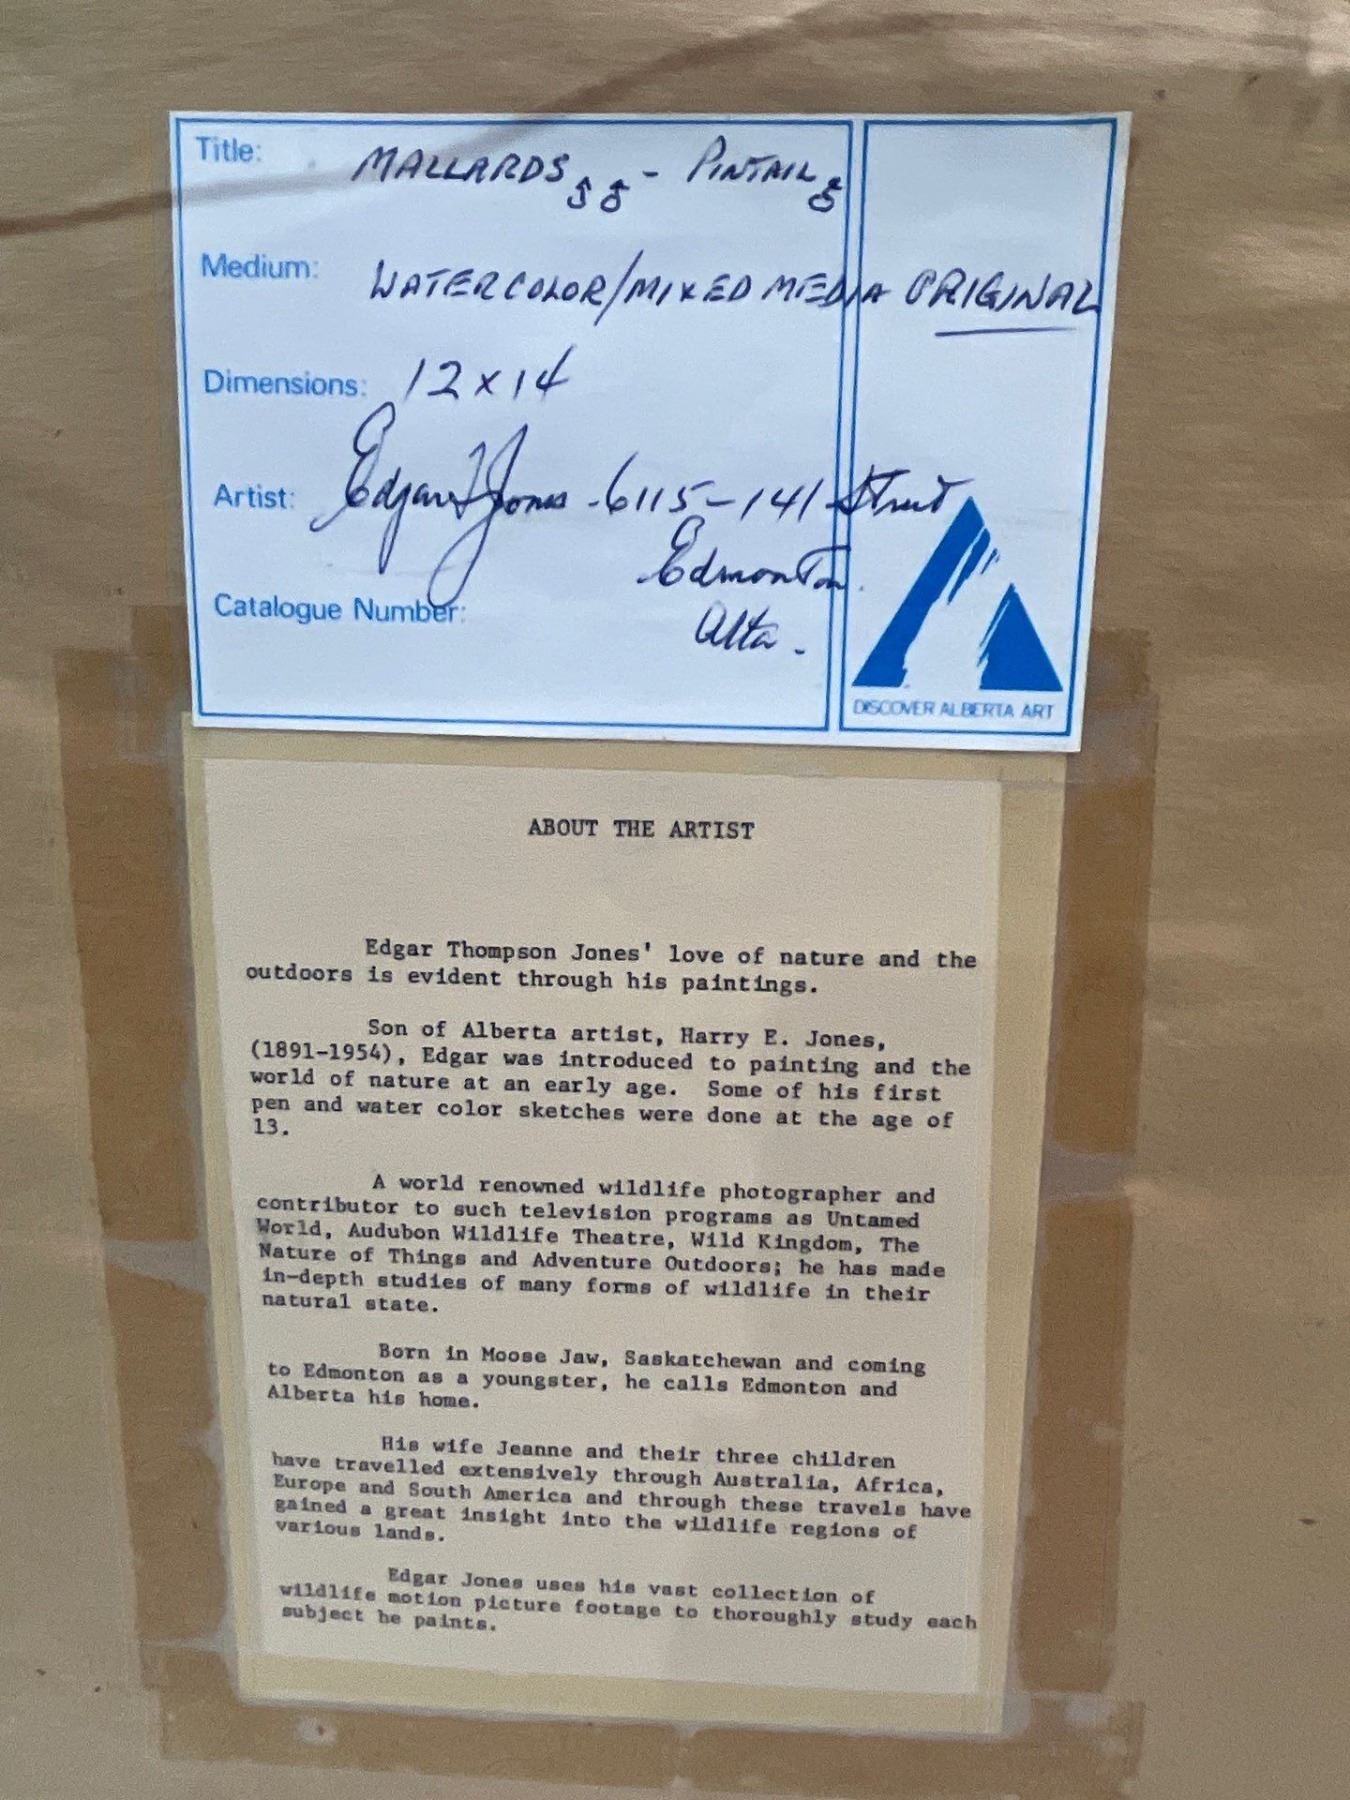 Title: MALLARDS ♂♂ - PINTAIL ♂
Medium: WATERCOLOR/MIXED MEDIA ORIGINAL
Dimensions: 12 x 14
Artist: Edgar T Jones - 6115-141 Street
Edmonton.
Alta.
Catalogue Number:
DISCOVER ALBERTA ART
ABOUT THE ARTIST
Edgar Thompson Jones' love of nature and the
outdoors is evident through his paintings.
Son of Alberta artist, Harry E. Jones,
(1891-1954), Edgar was introduced to painting and the
world of nature at an early age. Some of his first
pen and water color sketches were done at the age of
13.
A world renowned wildlife photographer and
contributor to such television programs as Untamed
World, Audubon Wildlife Theatre, Wild Kingdom, The
Nature of Things and Adventure Outdoors; he has made
in-depth studies of many forms of wildlife in their
natural state.
Born in Moose Jaw, Saskatchewan and coming
to Edmonton as a youngster, he calls Edmonton and
Alberta his home.
His wife Jeanne and their three children
have travelled extensively through Australia, Africa,
Europe and South America and through these travels have
gained a great insight into the wildlife regions of
various lands.
Edgar Jones uses his vast collection of
wildlife motion picture footage to thoroughly study each
subject he paints.